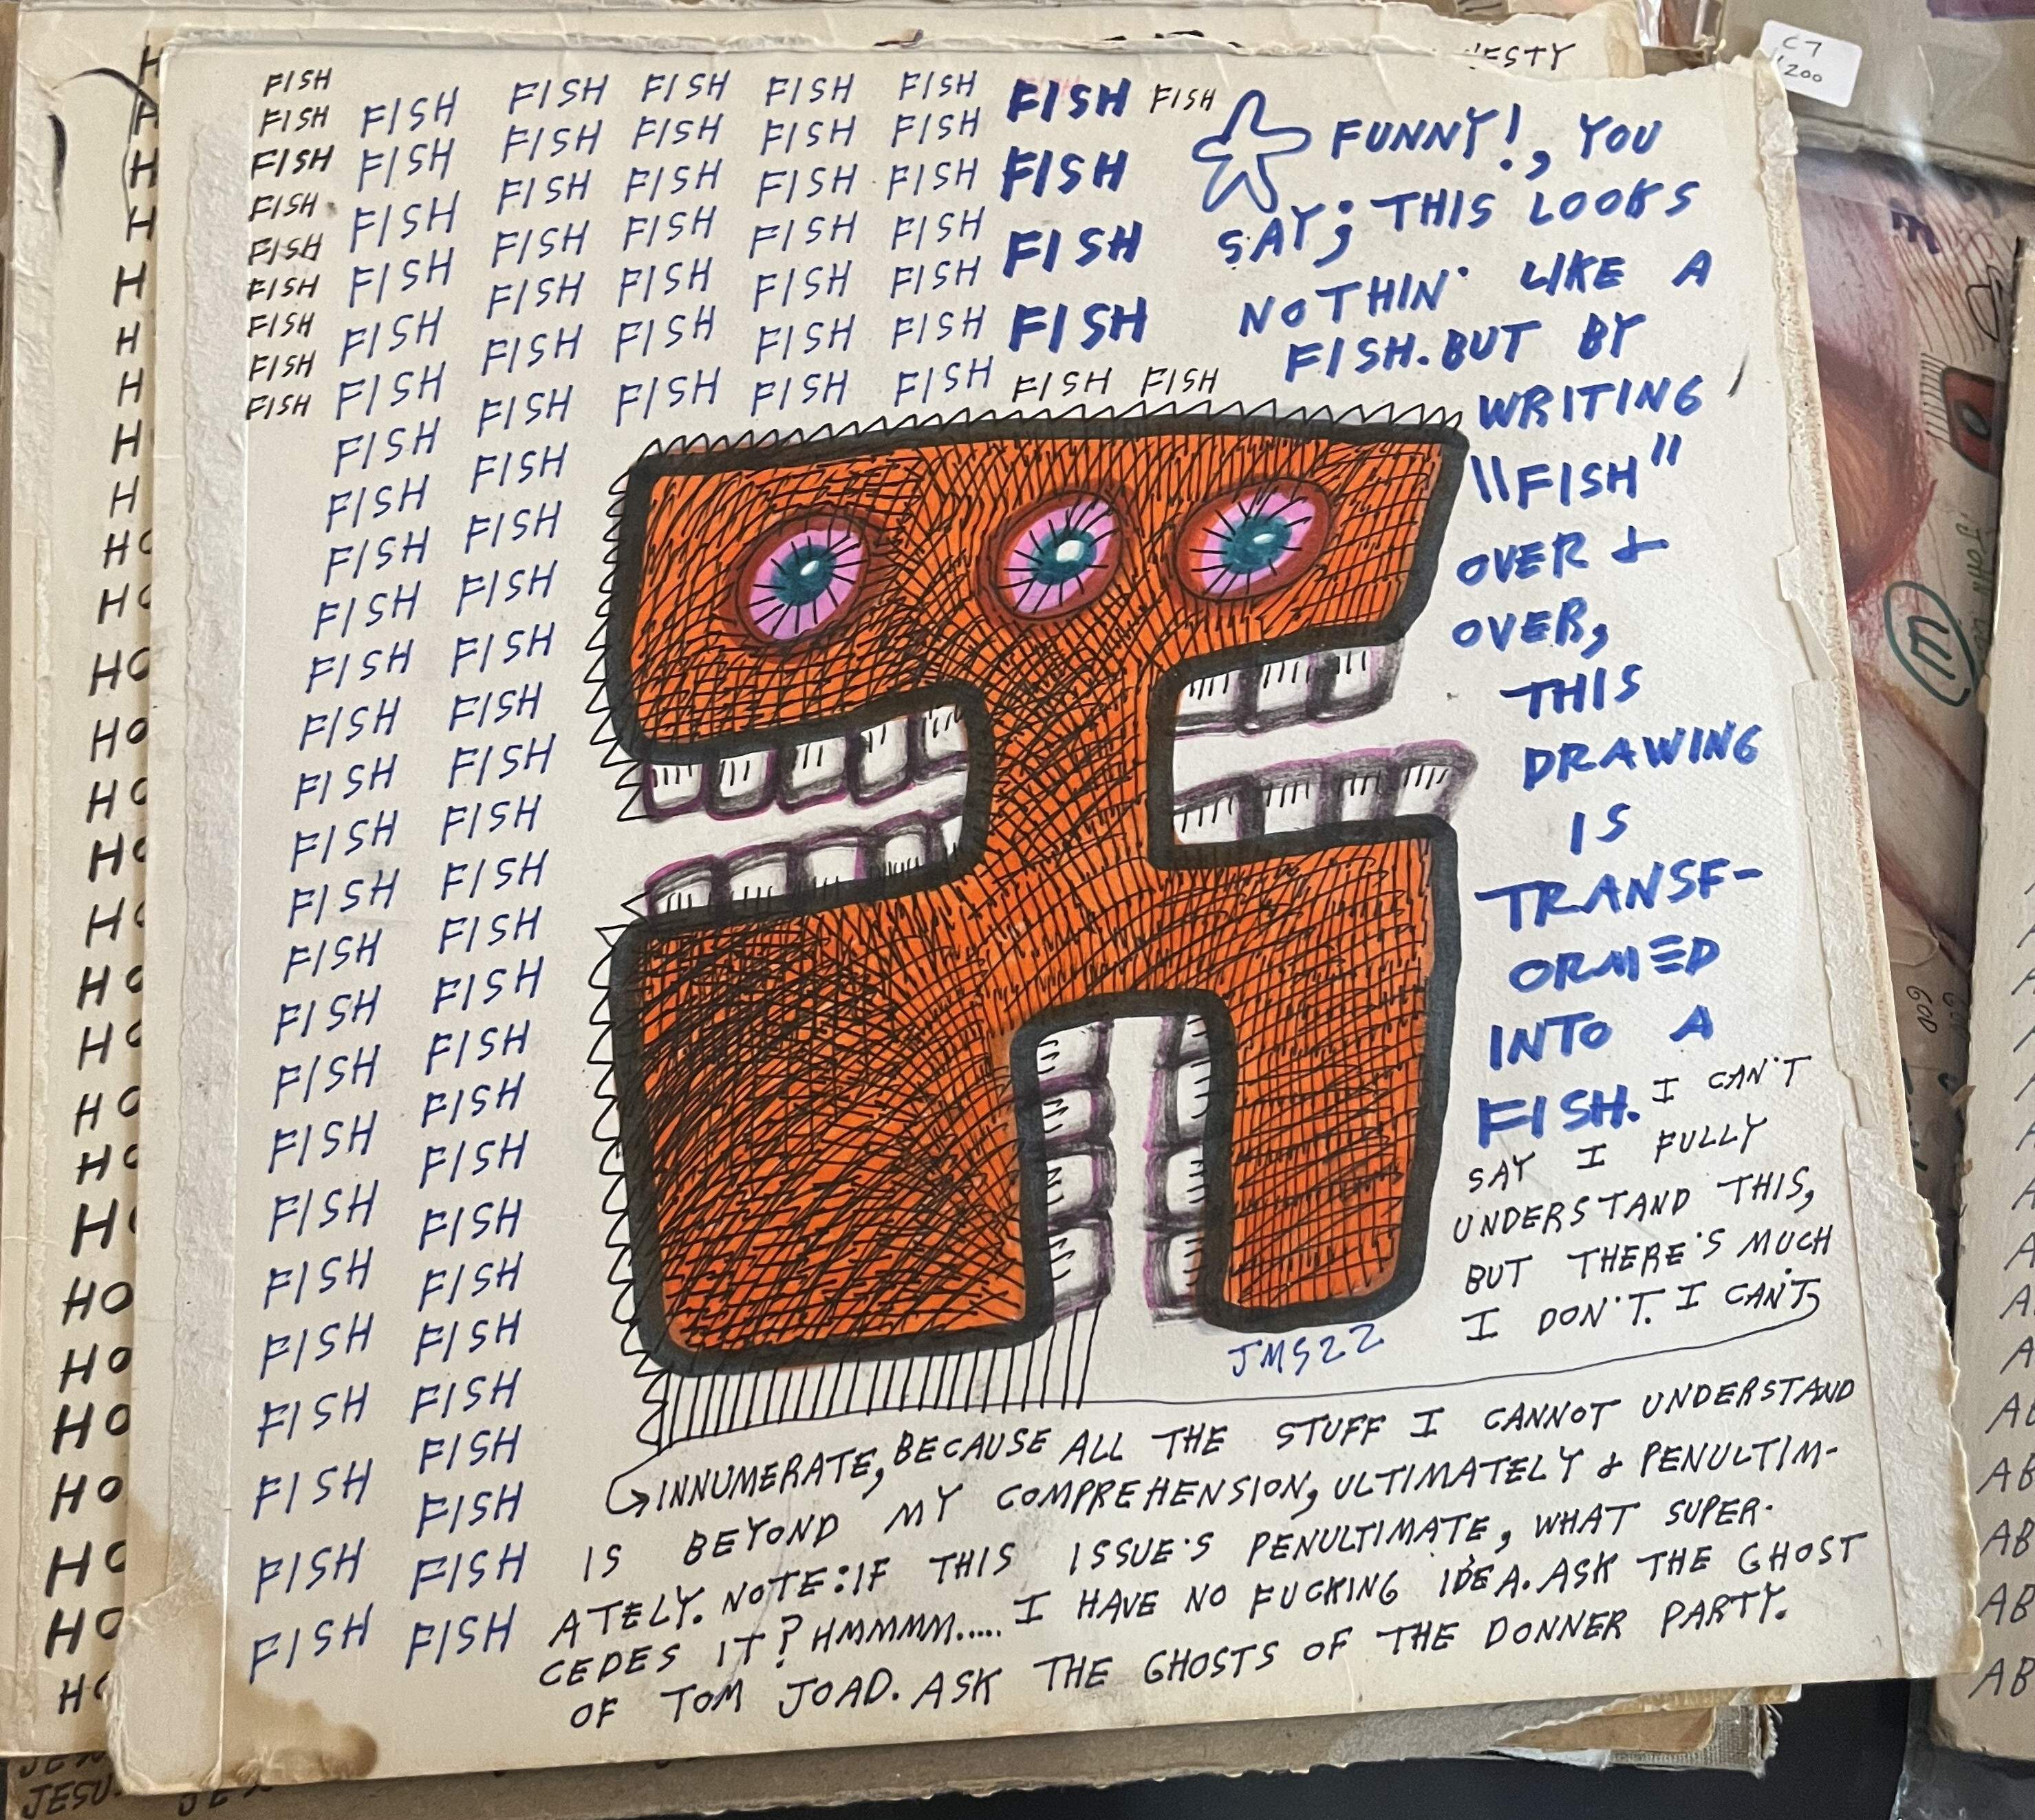 FISH FISH FISH FISH FISH FISH FISH FISH
FISH FISH FISH FISH FISH FISH FISH
FISH FISH FISH FISH FISH FISH FISH
FISH FISH FISH FISH FISH FISH FISH
FISH FISH FISH FISH FISH FISH
FISH FISH FISH FISH FISH FISH
FISH FISH FISH FISH FISH FISH FISH FISH
FISH FISH FISH
FISH FISH FISH
FISH FISH
FISH FISH
FISH FISH
FISH FISH
FISH FISH
FISH FISH
FISH FISH
FISH FISH
FISH FISH
FISH FISH
FISH FISH
FISH FISH
FISH FISH
FISH FISH
FISH FISH
FISH FISH
FISH FISH
FISH
FISH
FUNNY!, YOU
SAY; THIS LOOKS
NOTHIN' LIKE A
FISH. BUT BY
WRITING
"FISH"
OVER &
OVER,
THIS
DRAWING
IS
TRANSF-
ORMED
INTO A
FISH. I CAN'T
SAY I FULLY
UNDERSTAND THIS,
BUT THERE'S MUCH
I DON'T. I CAN'T,
JMS22
INNUMERATE, BECAUSE ALL THE STUFF I CANNOT UNDERSTAND
IS BEYOND MY COMPREHENSION, ULTIMATELY & PENULTIM-
ATELY. NOTE: IF THIS ISSUE'S PENULTIMATE, WHAT SUPER-
CEDES IT? HMMMM..... I HAVE NO FUCKING IDEA. ASK THE GHOST
OF TOM JOAD. ASK THE GHOSTS OF THE DONNER PARTY.
C7